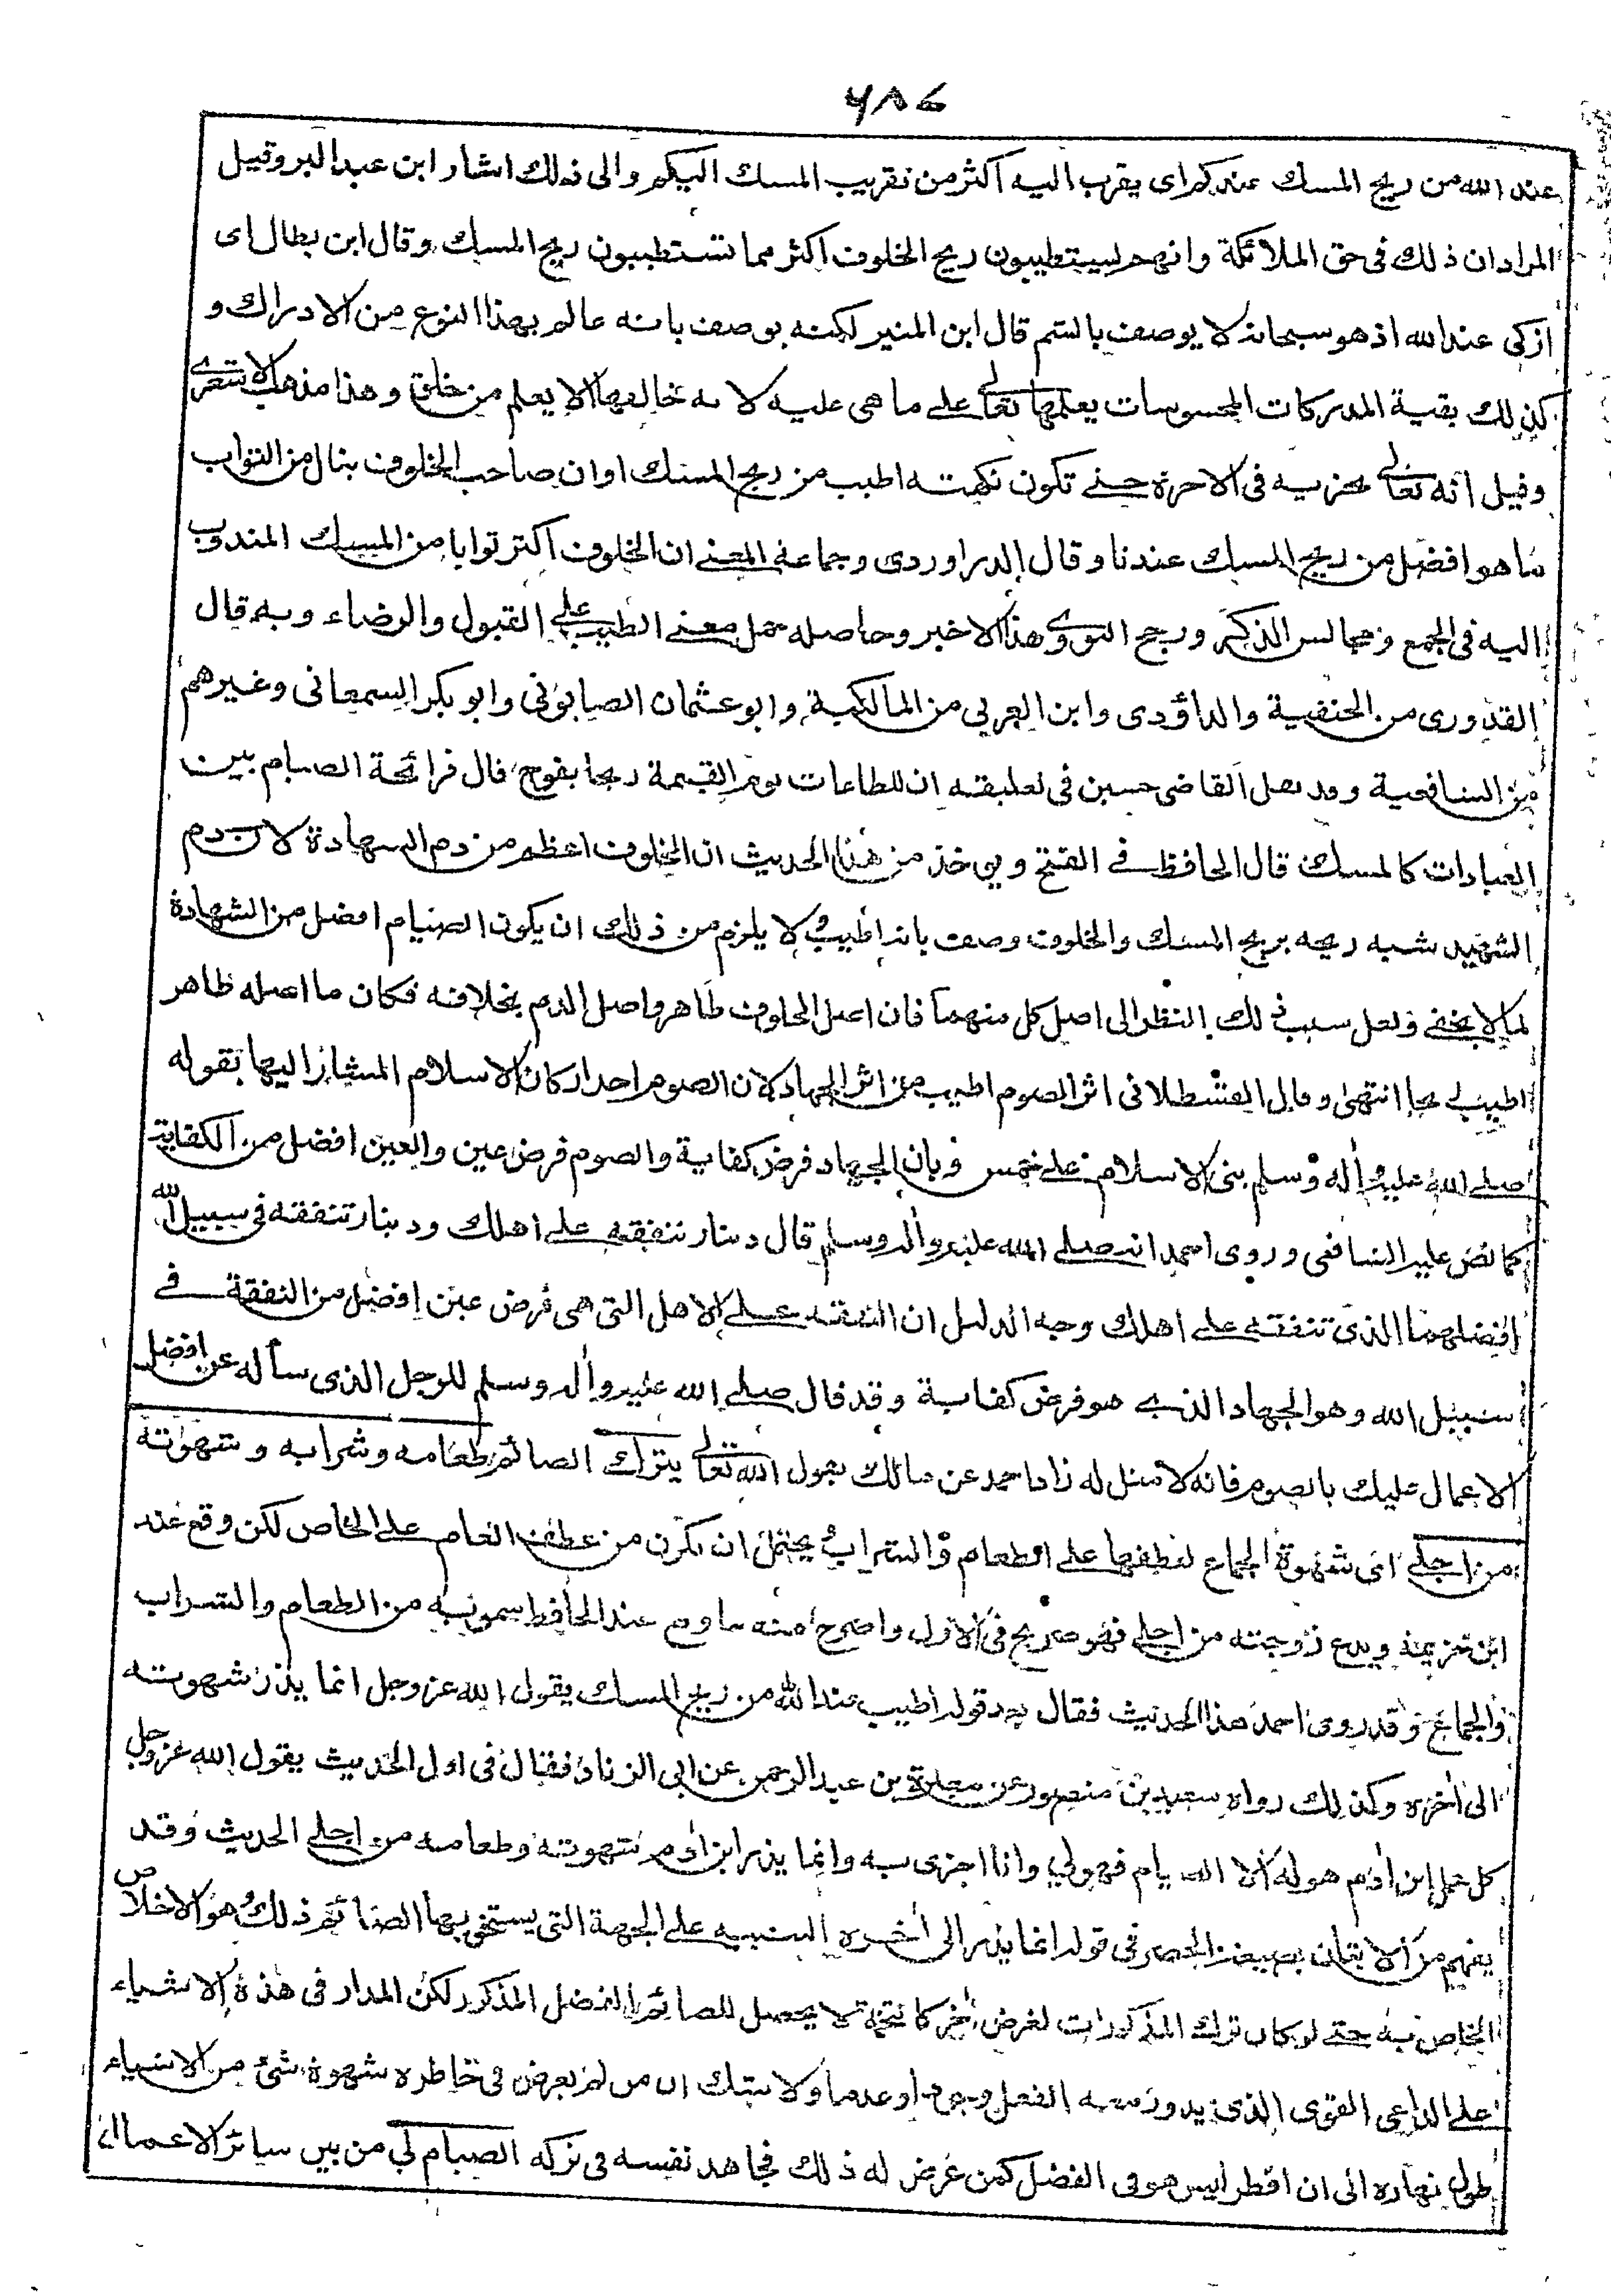 ٦٨٤
عند الله من ريح المسك عندكم اى يقرب اليه اكثر من تقريب المسك اليكم والى ذلك اشار ابن عبد البر وقيل
المراد ان ذلك فى حق الملائكة وانهم ليستطيبون ريح الخلوف اكثر مما تستطيبون ريح المسك وقال ابن بطال اى
ازكى عند الله اذ هو سبحانه لا يوصف بالشم قال ابن المنير لكنه يوصف بانه عالم بهذا النوع من الادراك و
كذلك بقية المدركات المحسوسات يعلمها تعالى على ما هى عليه لانه خالقها الا يعلم من خلق وهذا مذهب الاشعرى
وقيل انه تعالى يجزيه فى الاخرة حتى تكون نكهته اطيب من ريح المسك او ان صاحب الخلوف ينال من الثواب
ما هو افضل من ريح المسك عندنا وقال الدراوردى وجماعة المعنى ان الخلوف اكثر ثوابا من المسك المندوب
اليه فى الجمع ومجالس الذكر ورجح النووى هذا الاخير وحاصله حمل معنى الطيب على القبول والرضاء وبه قال
القدورى من الحنفية والداؤدى وابن العربى من المالكية وابو عثمان الصابونى وابو بكر السمعانى وغيرهم
من الشافعية وقد نقل القاضى حسين فى تعليقته ان للطاعات يوم القيمة ريحا يفوح قال فرائحة الصيام بين
العبادات كالمسك قال الحافظ فى الفتح ويؤخذ من هذا الحديث ان الخلوف اعظم من دم الشهادة لان دم
الشهيد شبه ريحه بريح المسك والخلوف وصف بانه اطيب ولا يلزم من ذلك ان يكون الصيام افضل من الشهادة
لما لا يخفى ولعل سبب ذلك النظر الى اصل كل منهما فان اصل الخلوف طاهر واصل الدم بخلافه فكان ما اصله طاهر
اطيب ريحا انتهى وقال القسطلانى اثر الصوم اطيب من اثر الجهاد لان الصوم احد اركان الاسلام المشار اليها بقوله
صلى الله عليه واله وسلم بنى الاسلام على خمس وبان الجهاد فرض كفاية والصوم فرض عين والعين افضل من الكفاية
كما نص عليه الشافعى وروى احمد انه صلى الله عليه واله وسلم قال دينار تنفقه على اهلك ودينار تنفقه فى سبيل الله
افضلهما الذى تنفقه على اهلك وجه الدليل ان النفقة على الاهل التى هى فرض عين افضل من النفقة فى
سبيل الله وهو الجهاد الذى هو فرض كفاية وقد قال صلى الله عليه واله وسلم للرجل الذى سأله عن افضل
الاعمال عليك بالصوم فانه لا مثل له زاد احمد عن مالك يقول الله تعالى يترك الصائم طعامه وشرابه وشهوته
من اجلى اى شهوة الجماع لعطفها على الطعام والشراب ويحتمل ان تكون من عطف العام على الخاص لكن وقع عند
ابن خزيمة ويدع زوجته من اجلى فهو صريح فى الاول واصرح منه ما وقع عند الحافظ سمويه من الطعام والشراب
والجماع وقد روى احمد هذا الحديث فقال بعد قوله اطيب عند الله من ريح المسك يقول الله عز وجل انما يذر شهوته
الى اخره وكذلك رواه سعيد بن منصور عن مغيرة بن عبد الرحمن عن ابى الزناد فقال فى اول الحديث يقول الله عز وجل
كل عمل ابن ادم هو له الا الصيام فهو لى وانا اجزى به وانما يذر ابن ادم شهوته وطعامه من اجلى الحديث وقد
يفهم من الاتيان بصيغة الحصر فى قوله انما يذر الى اخره التنبيه على الجهة التى يستحق بها الصائم ذلك وهو الاخلاص
الخاص به حتى لو كان ترك المذكورات لغرض اخر كالتخمة لا يحصل للصائم الفضل المذكور لكن المدار فى هذه الاشياء
على الداعى القوى الذى يدور معه الفعل وجودا وعدما ولا شك ان من لم يعرض فى خاطره شهوة شئ من الاشياء
طول نهاره الى ان افطر ليس هو فى الفضل كمن عرض له ذلك فجاهد نفسه فى تركه الصيام لى من بين سائر الاعمال